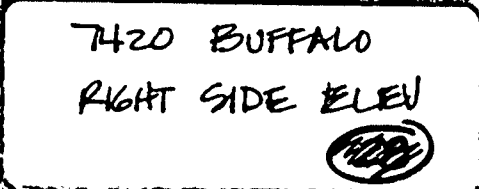 7420 BUFFALO
RIGHT SIDE ELEV